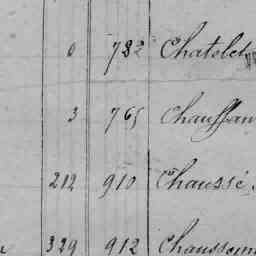 0 782 Chatelet
3 765 Chauffau
212 910 Chaussé
329 912 Chaussem